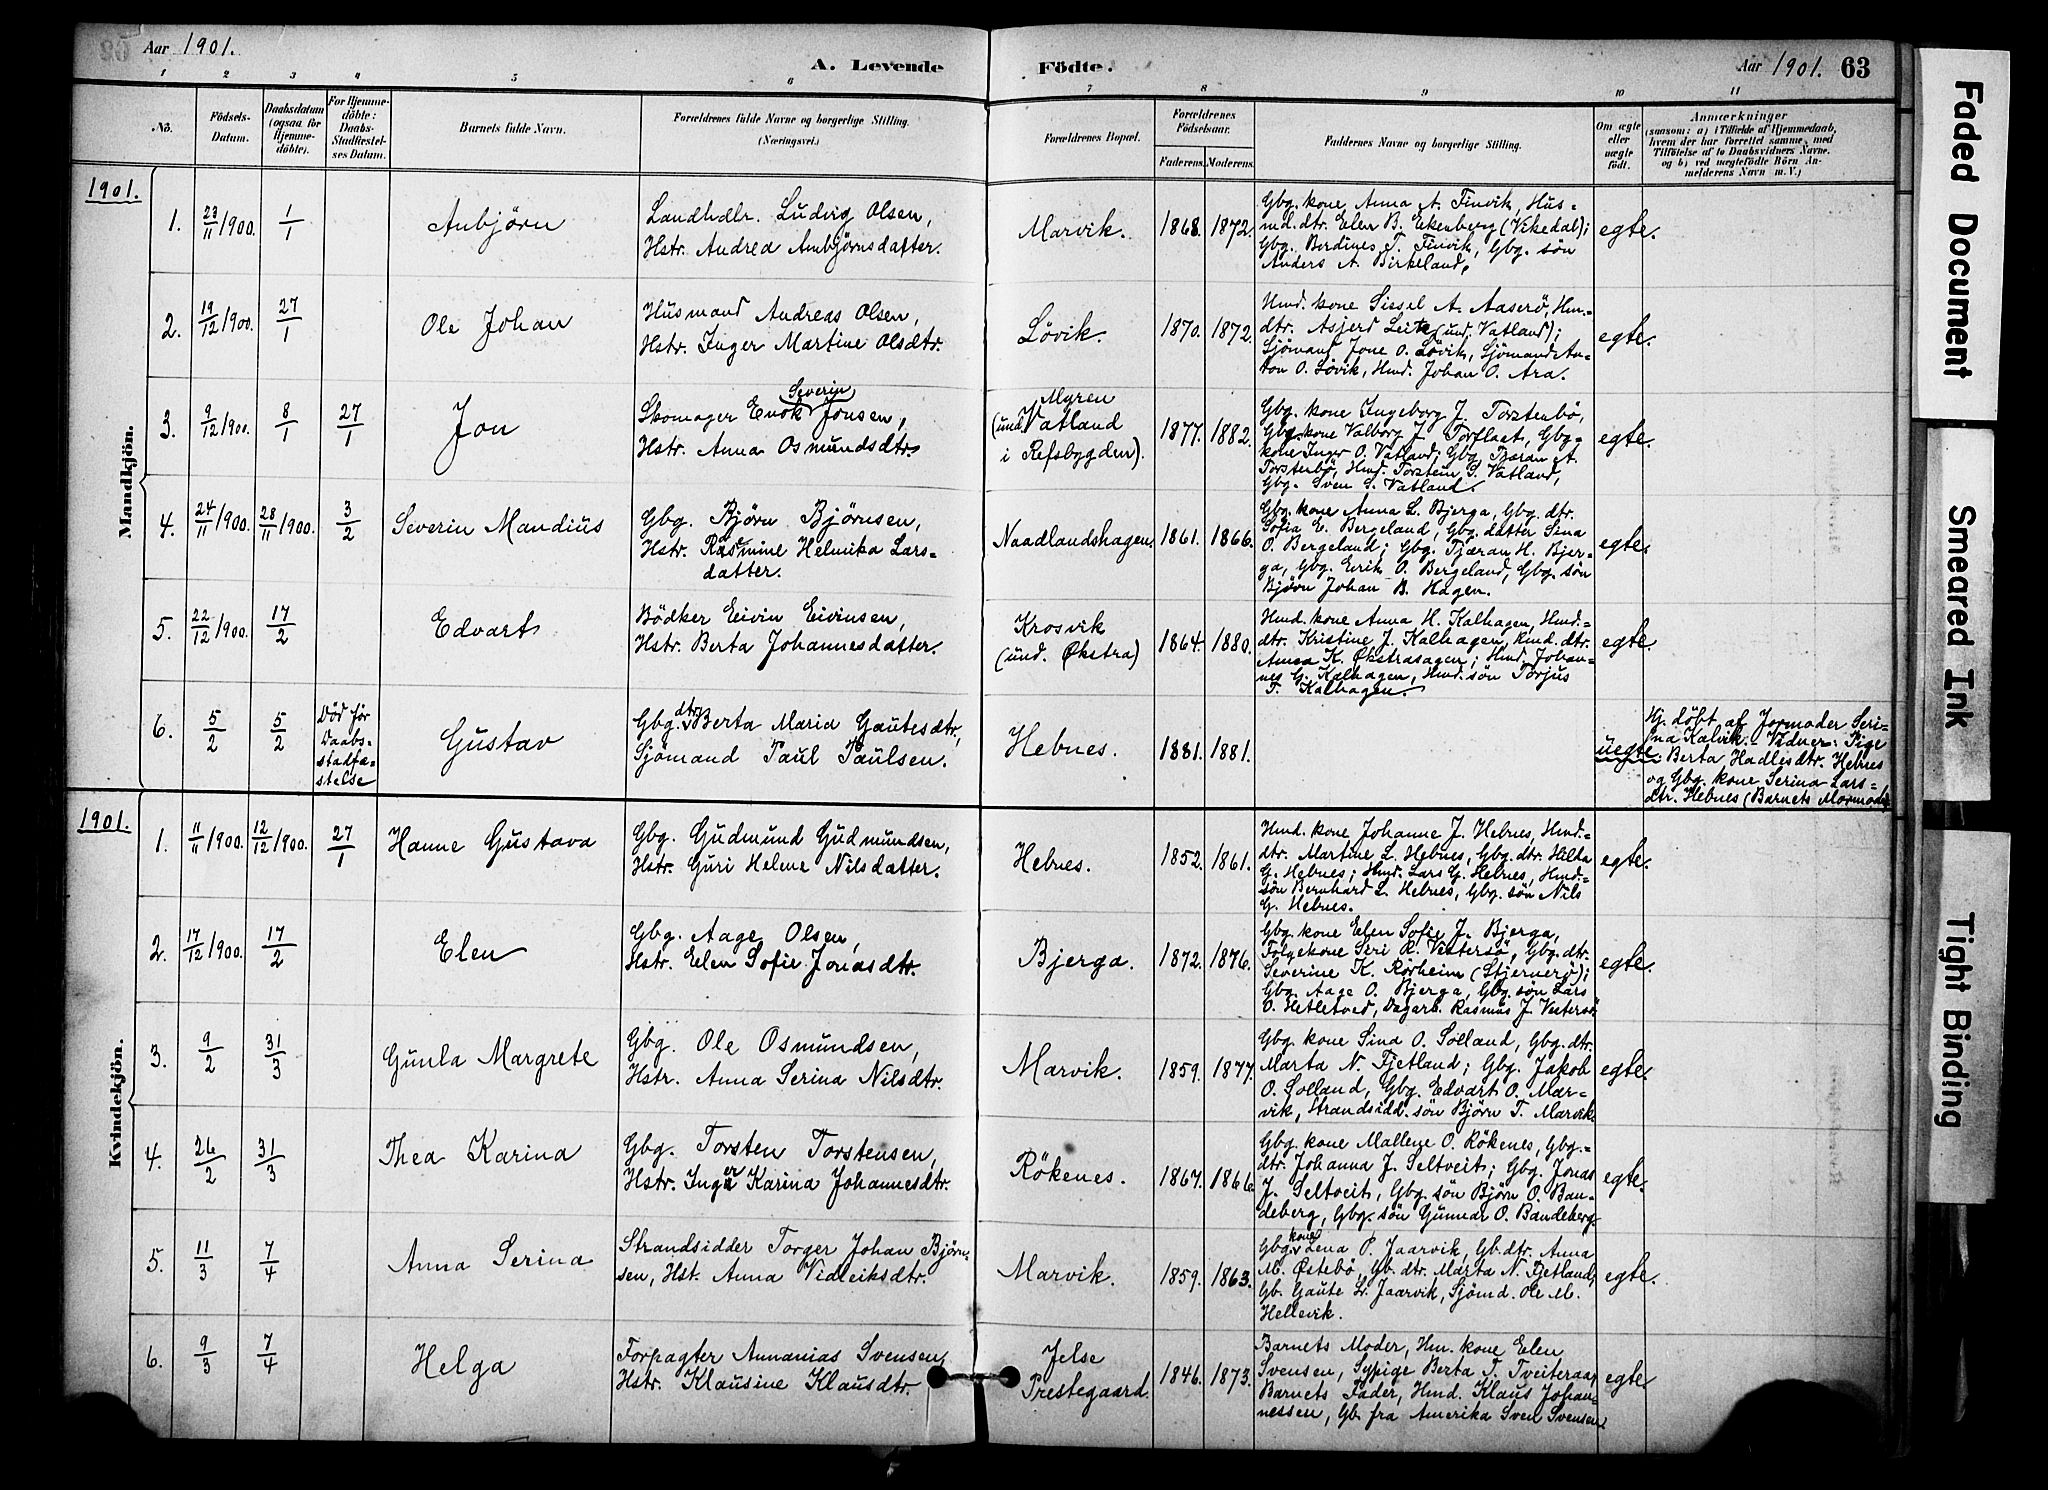 Aar 1901.
A. Levende Födte.
Aar 1901. 63
1 2 3 4 5 6 7 8 9 10 11
No.
Födsels-Datum.
Daabsdatum (ogsaa for Hjemmedöbte).
For Hjemmedöbte: Daabs-Stadfæstelses Datum.
Barnets fulde Navn.
Forældrenes fulde Navne og borgerlige Stilling.
(Næringsvei.)
Forældrenes Bopæl.
Forældrenes Födselsaar.
Faderens. Moderens.
Faddernes Navne og borgerlige Stilling.
Om ægte eller uægte födt.
Anmærkninger
(saasom: a) i Tilfælde af Hjemmedaab, hvem der har forrettet samme, med Tilföielse af to Daabsvidners Navne, og b) ved uægtefödte Börn Anmelderens Navn m. V.)
1901.
Mandkjön.
1. 23/11 1900. 1/1
Anbjörn
Landhdlr. Ludvig Olsen,
Hstr. Andrea Ambjörnsdatter.
Marvik.
1868. 1872.
Gbg. kone Anna A. Finvik, Hus-
md. dtr. Elen B. Ekenberg (Vikedal);
Gbg. Berdines T. Finvik, Gbg. sön
Anders A. Birkeland.
egte.
2. 19/12 1900. 27/1
Ole Johan
Husmand Andreas Olsen,
Hstr. Inger Martine Olsdtr.
Lövik.
1870. 1872.
Hmd. kone Sissel A. Aaserö, Hm.-
dtr. Asjerd Leite (und. Vatland);
Sjömand Jone O. Lövik, Sjömand An-
ton O. Lövik, Hmd. Johan O. Ara.
egte.
3. 9/12 1900. 8/1 27/1
Jon
Skomager Enok Severin Jonsen,
Hstr. Anna Osmundsdtr.
Myren
(und. Vatland
i Refsbygden).
1877. 1882.
Gbg. kone Ingeborg J. Torstenbö,
Gbg. kone Valborg J. Torflaat, Gbg.-
kone Inger O. Vatland; Gbg. Tjæran A.
Torstenbö, Hmd. Torstein S. Vatland,
Gbg. Sven S. Vatland.
egte.
4. 24/11 1900. 28/11 1900. 3/2
Severin Mandius
Gbg. Björn Björnsen,
Hstr. Rasmine Helmika Lars-
datter.
Naadlandshagen.
1861. 1866.
Gbg. kone Anna L. Bjerga, Gbg. dtr.
Sofia E. Bergeland, Gbg. datter Sina
O. Bergeland; Gbg. Tjæran H. Bjer-
ga, Gbg. Eirik O. Bergeland, Gbg. sön
Björn Johan B. Hagen.
egte.
5. 22/12 1900. 17/2
Edvart
Bödker Eivin Eivinsen,
Hstr. Berta Johannesdatter.
Krosvik
(und. Økstra)
1864. 1880.
Hmd. kone Anna H. Kalhagen, Hmd.-
dtr. Kristine J. Kalhagen, Hmd. dtr.
Anna K. Økstrasagen; Hmd. Johan-
nes G. Kalhagen, Hmd. sön Torjus
T. Kalhagen.
egte.
6. 5/2 5/2
Död för
Daabs-
stadfæ-
stelse
Gustav
Gbg. dtr. Berta Maria Gautesdtr.,
Sjömand Paul Paulsen.
Hebnes.
1881. 1881.
uegte
Hj. döbt af Jormoder Seri-
na Kalvik. Vidner: Pige
Berta Hadlesdtr. Hebnes
og Gbg. kone Serina Lars-
dtr. Hebnes (Barnets Mormoder)
1901.
Kvindekjön.
1. 11/11 1900. 12/12 1900. 27/1
Hanne Gustava
Gbg. Gudmund Gudmundsen,
Hstr. Guri Helene Nilsdatter.
Hebnes.
1852. 1861.
Hmd. kone Johanne J. Hebnes, Hmd.-
dtr. Martine L. Hebnes, Gbg. dtr. Hilda
G. Hebnes; Hmd. Lars G. Hebnes, Hmd.-
sön Bernhard L. Hebnes, Gbg. sön Nils
G. Hebnes.
egte.
2. 17/12 1900. 17/2
Elen
Gbg. Aage Olsen,
Hstr. Elen Sofie Jonasdtr.
Bjerga.
1872. 1876.
Gbg. kone Elen Sofie J. Bjerga,
Følgekone Seri R. Vestersö, Gbg. dtr.
Severine K. Rorheim (Stjernerö);
Gbg. Aage O. Bjerga, Gbg. sön Lars
O. Hetletved, Dagarb. Rasmus J. Vestersö.
egte.
3. 9/2 31/3
Gunla Margrete
Gbg. Ole Osmundsen,
Hstr. Anna Serina Nilsdtr.
Marvik.
1859. 1877.
Gbg. kone Sina O. Solland, Gbg. dtr.
Marta N. Fjetland; Gbg. Jakob
O. Solland, Gbg. Edvart O. Mar-
vik, Strandsidd. sön Björn T. Marvik.
egte.
4. 26/2 31/3
Thea Karina
Gbg. Torsten Torstensen,
Hstr. Inger Karina Johannesdtr.
Rökenes.
1867. 1866.
Gbg. kone Mallene O. Rökenes, Gbg.-
dtr. Johanna J. Seltveit; Gbg. Jonas
J. Seltveit, Gbg. sön Björn O. Ban-
deberg, Gbg. sön Gunnar O. Bandeberg
egte.
5. 11/3 7/4
Anna Serina
Strandsidder Torger Johan Björn-
sen, Hst. Anna Vidleiksdtr.
Marvik.
1859. 1863.
Gbg. kone Lena P. Jaarvik, Gb. dtr. Anna
M. Östebö, Gb. dtr. Marta N. Fjetland,
Gb. Gaute L. Jaarvik, Sjömd. Ole M.
Hellevik.
egte.
6. 9/3 7/4
Helga
Forpagter Annanias Svensen,
Hstr. Klausine Klausdtr.
Jelse
Prestegaard.
1846. 1873.
Barnets Moder, Hm. kone Elen
Svensen, Sypige Berta T. Tveiteraas,
Barnets Fader, Hmd. Klaus Johan-
nessen, Gb. fra Amerika Sven Svensen
egte.
Faded Document
Smeared Ink
Tight Binding